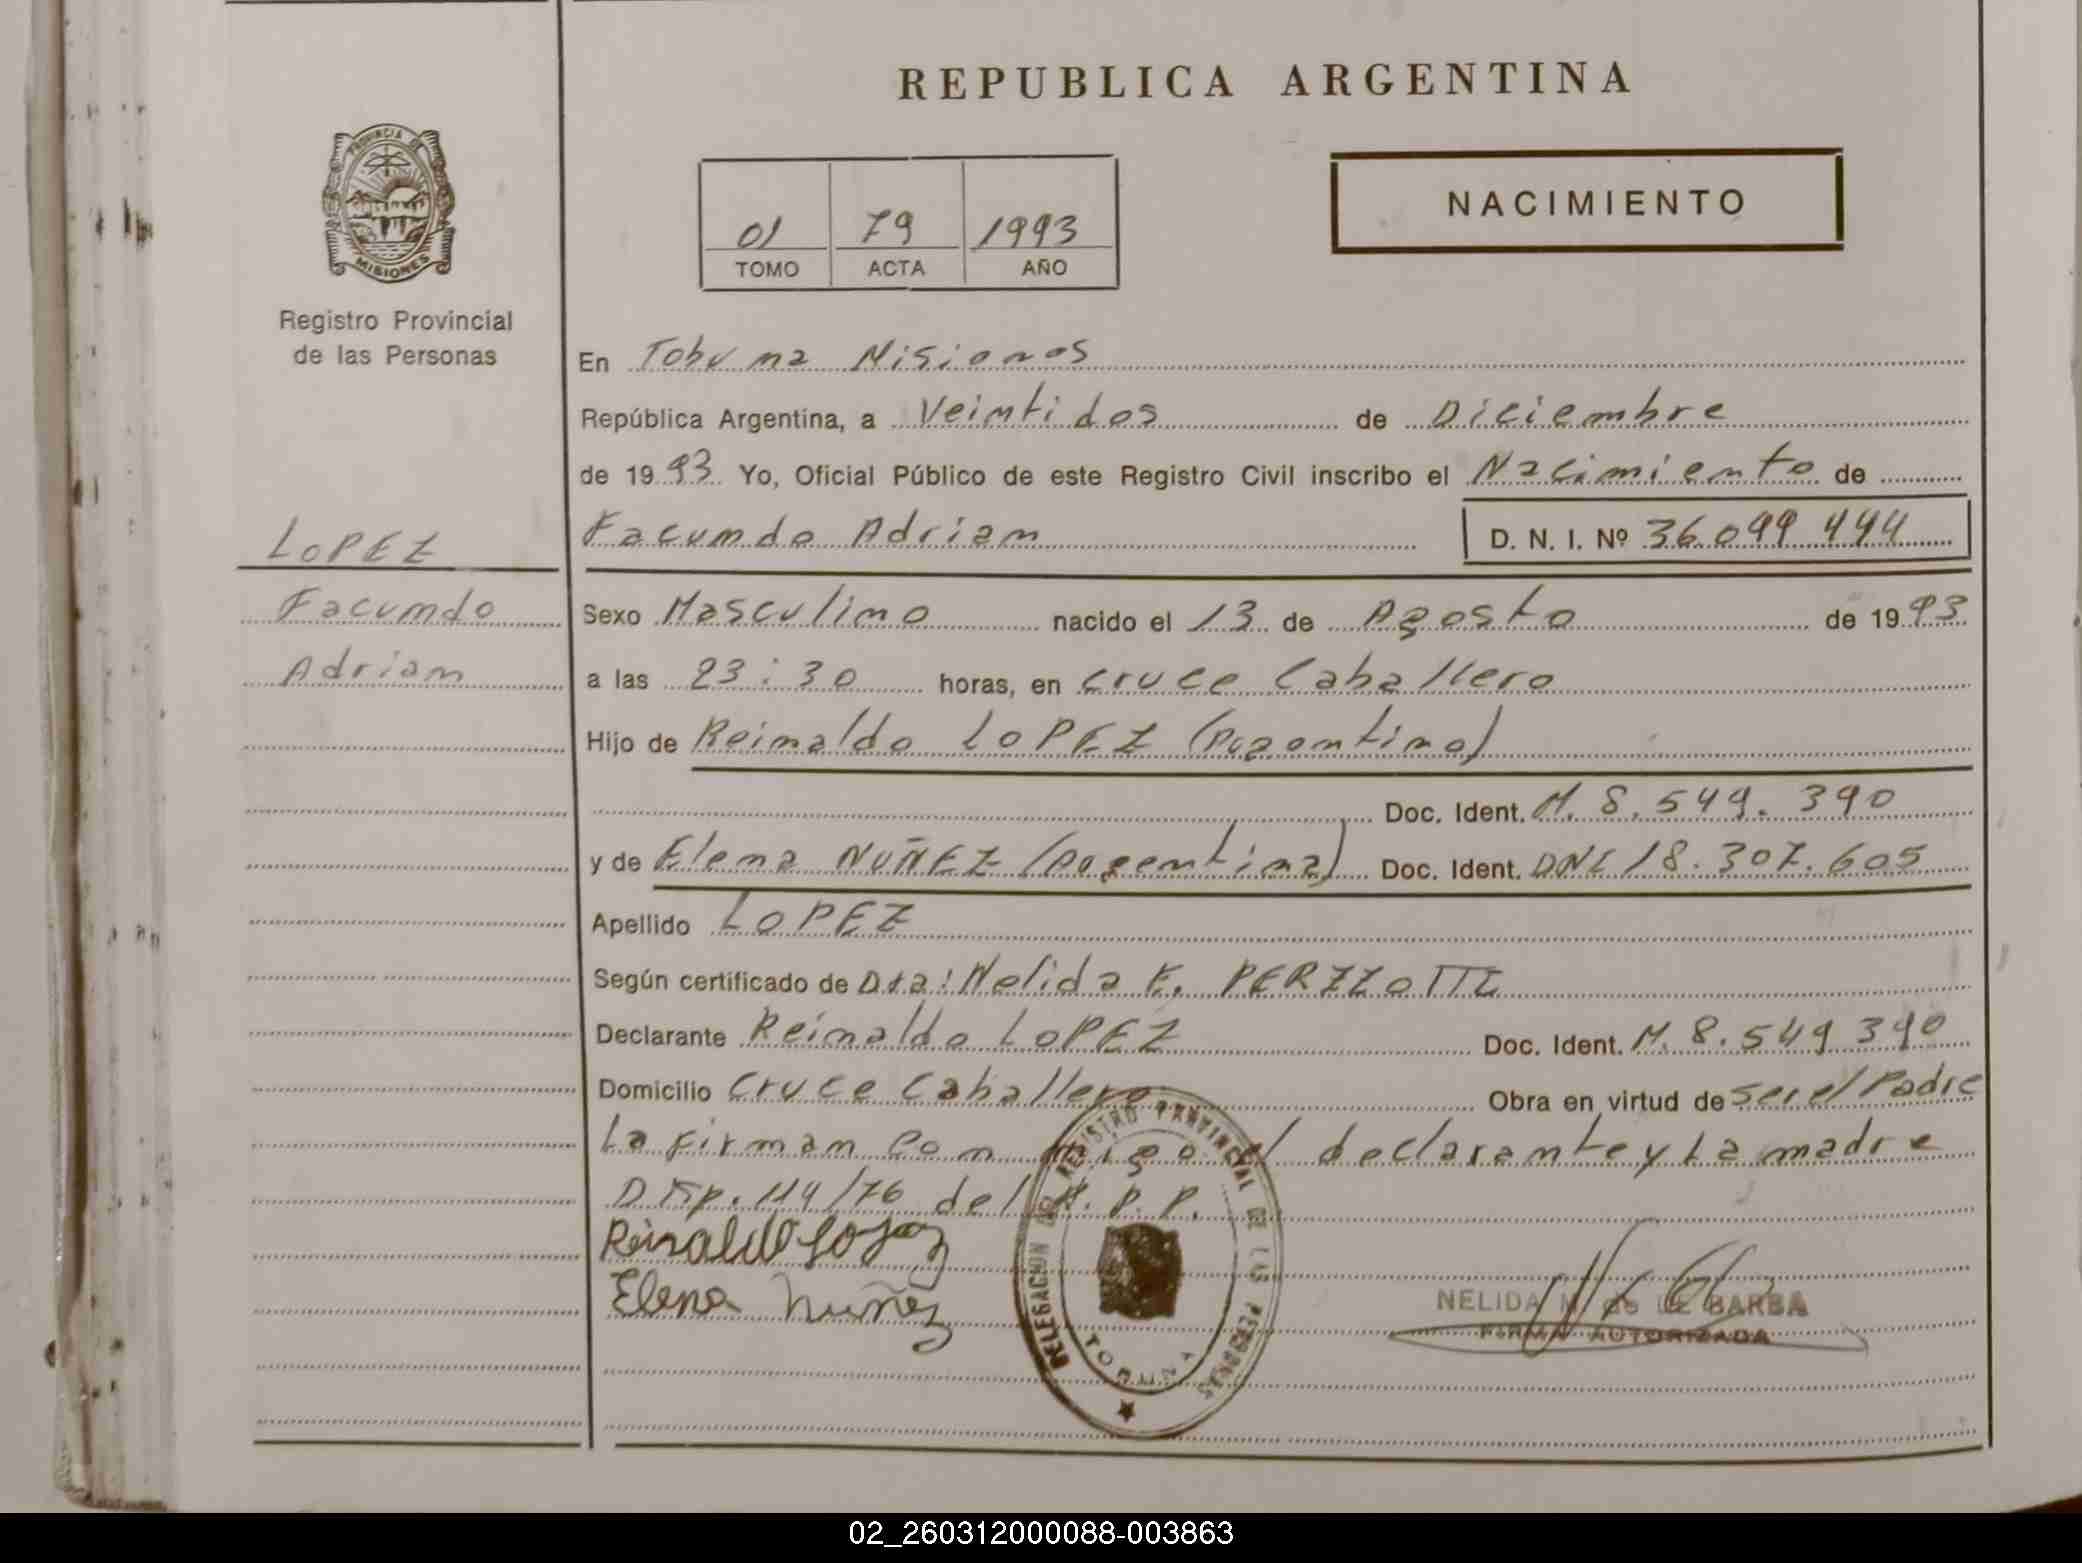 REPUBLICA ARGENTINA
PROVINCIA DE MISIONES
Registro Provincial
de las Personas
01 79 1993
TOMO ACTA AÑO
NACIMIENTO
En Tobuna Misiones
República Argentina, a Veintidos de Diciembre
de 1993 Yo, Oficial Público de este Registro Civil inscribo el Nacimiento de
LOPEZ
Facundo
Adrian
Facundo Adrian D. N. I. Nº 36.099.494
Sexo Masculino nacido el 13 de Agosto de 1993
a las 23:30 horas, en Cruce Caballero
Hijo de Reinaldo LOPEZ (Argentino)
Doc. Ident. M. 8.549.390
y de Elena NUÑEZ (Argentina) Doc. Ident. DNI 18.307.605
Apellido LOPEZ
Según certificado de Dra: Nelida E. PERZZOTTI
Declarante Reinaldo LOPEZ Doc. Ident. M. 8.549 390
Domicilio Cruce Caballero Obra en virtud de ser el Padre
La firman con migo el declarante y La madre
Disp. 114/76 del R.P.P.
Reinaldo Lopez
Elena Nuñez
DELEGACION DEL REGISTRO PROVINCIAL DE LAS PERSONAS
TOBUNA
NELIDA M. de LE BARBA
FIRMA AUTORIZADA
02_260312000088-003863